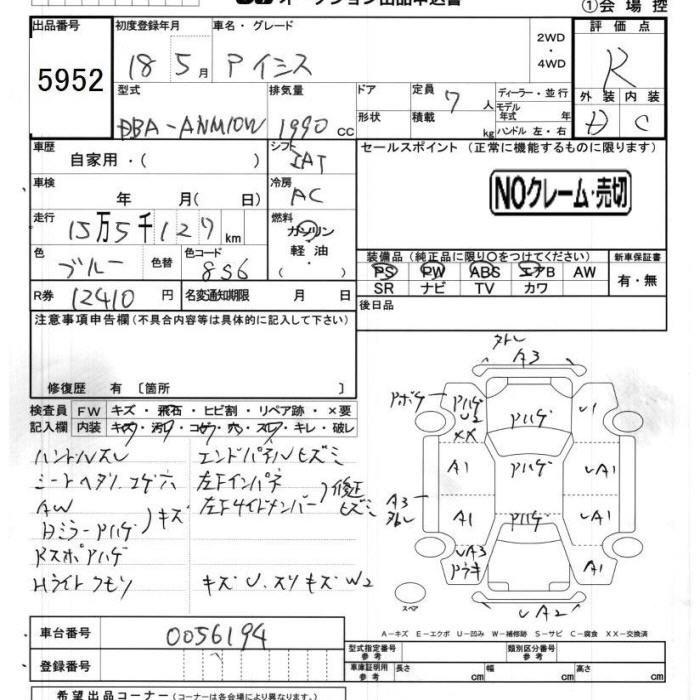 オークション出品申込書
①会場控
出品番号
5952
初度登録年月
18 5月
車名・グレード
アイシス
2WD
・
4WD
評価点
R
外装 内装
D C
型式
DBA-ANM10W
排気量
1990 CC
ドア
形状
定員 7 人
積載 kg
ディーラー・並行
モデル年式 年
ハンドル 左・右
車歴
自家用・( )
シフト
IAT
セールスポイント(正常に機能するものに限ります)
NOクレーム・売切
車検
年 月( 日)
冷房
AC
走行
15万5千127km
燃料
ガソリン
軽油
( ・ )
色
ブルー
色替
色コード
8S6
装備品(純正品に限り〇をつけてください)
新車保証書
PS PW ABS エアB AW
SR ナビ TV カワ
有・無
R券 12410 円
名変通知期限 月 日
後日品
注意事項申告欄(不具合内容等は具体的に記入して下さい)
修復歴 有〔箇所 〕
検査員記入欄
FW キズ・飛石・ヒビ割・リペア跡・×要
内装 キズ・汚れ・コゲ・穴・スレ・キレ・破レ
ハンドルスレ
シートヘタリ.コゲ穴
AW
Bミラーアハゲ
)キズ
RスポアハゲHライトクモリ
エンドパネルヒズミ
左Fインパネ
左Fサイドメンバー
)修正ヒズミ
キズU.スリキズW2
外レ
A3
アボケ
アハゲ
U2
XX
アハゲ
U1
A1
アハゲ
UA1
A3
外レ
A1
アハゲ
UA1
UA3
アウキ
A1
スペア
UA2
A-キズ E-エクボ U-凹み W-補修跡 S-サビ C-腐食 XX-交換済
車台番号 0056194
登録番号
型式指定番号
参考
類別区分番号
参考
車庫証明用
参考
長さ cm 幅 cm 高さ cm
希望出品コーナー(コーナーは各会場により異なります。)